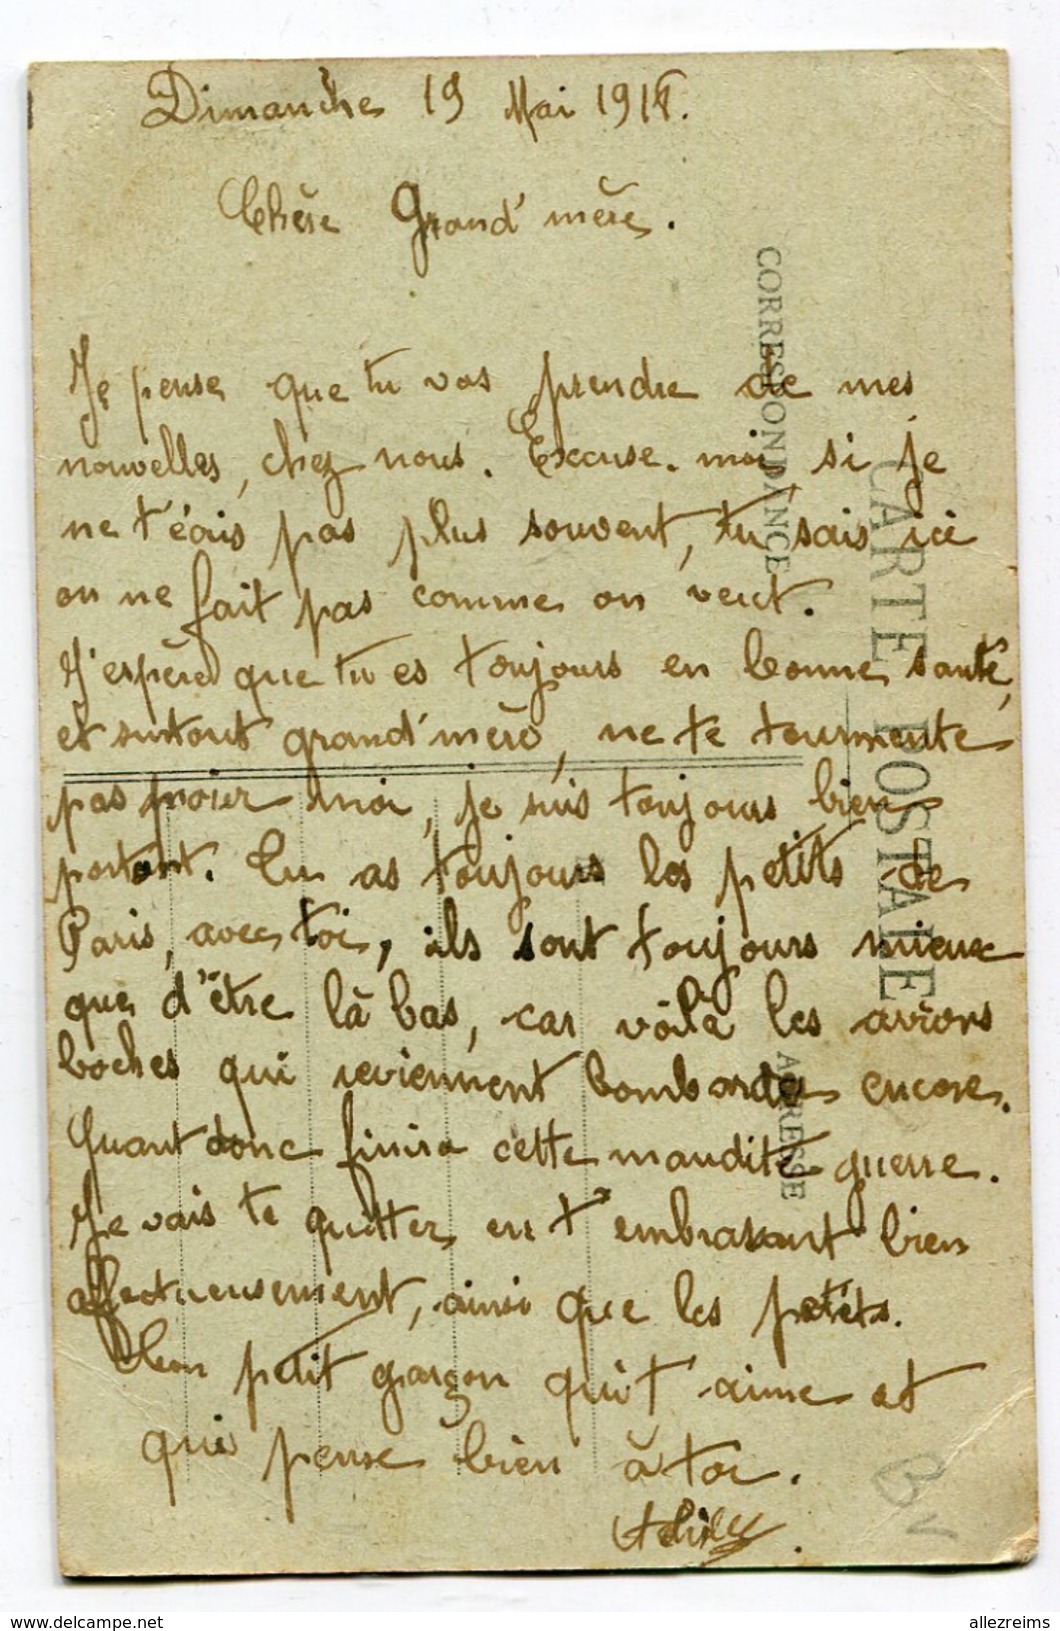 Dimanche 19 Mai 1918.
Chère Grand'mère.
Je pense que tu vas prendre de mes
nouvelles, chez nous. Excuse-moi, si je
ne t'écris pas plus souvent, tu sais ici
on ne fait pas comme on veut.
J'espère que tu es toujours en bonne santé,
et surtout grand'mère, ne te tourmente
pas pour moi, je suis toujours bien
portant. Tu as toujours les petits de
Paris, avec toi, ils sont toujours mieux
que d'être là bas, car voilà les avions
boches qui reviennent bombarder encore.
Quant donc finira cette maudite guerre.
Je vais te quitter en t'embrassant bien
affectueusement, ainsi que les petits.
Ton petit garçon qui t'aime et
qui pense bien à toi.
CORRESPONDANCE
CARTE POSTALE
ADRESSE
BV
allezreims